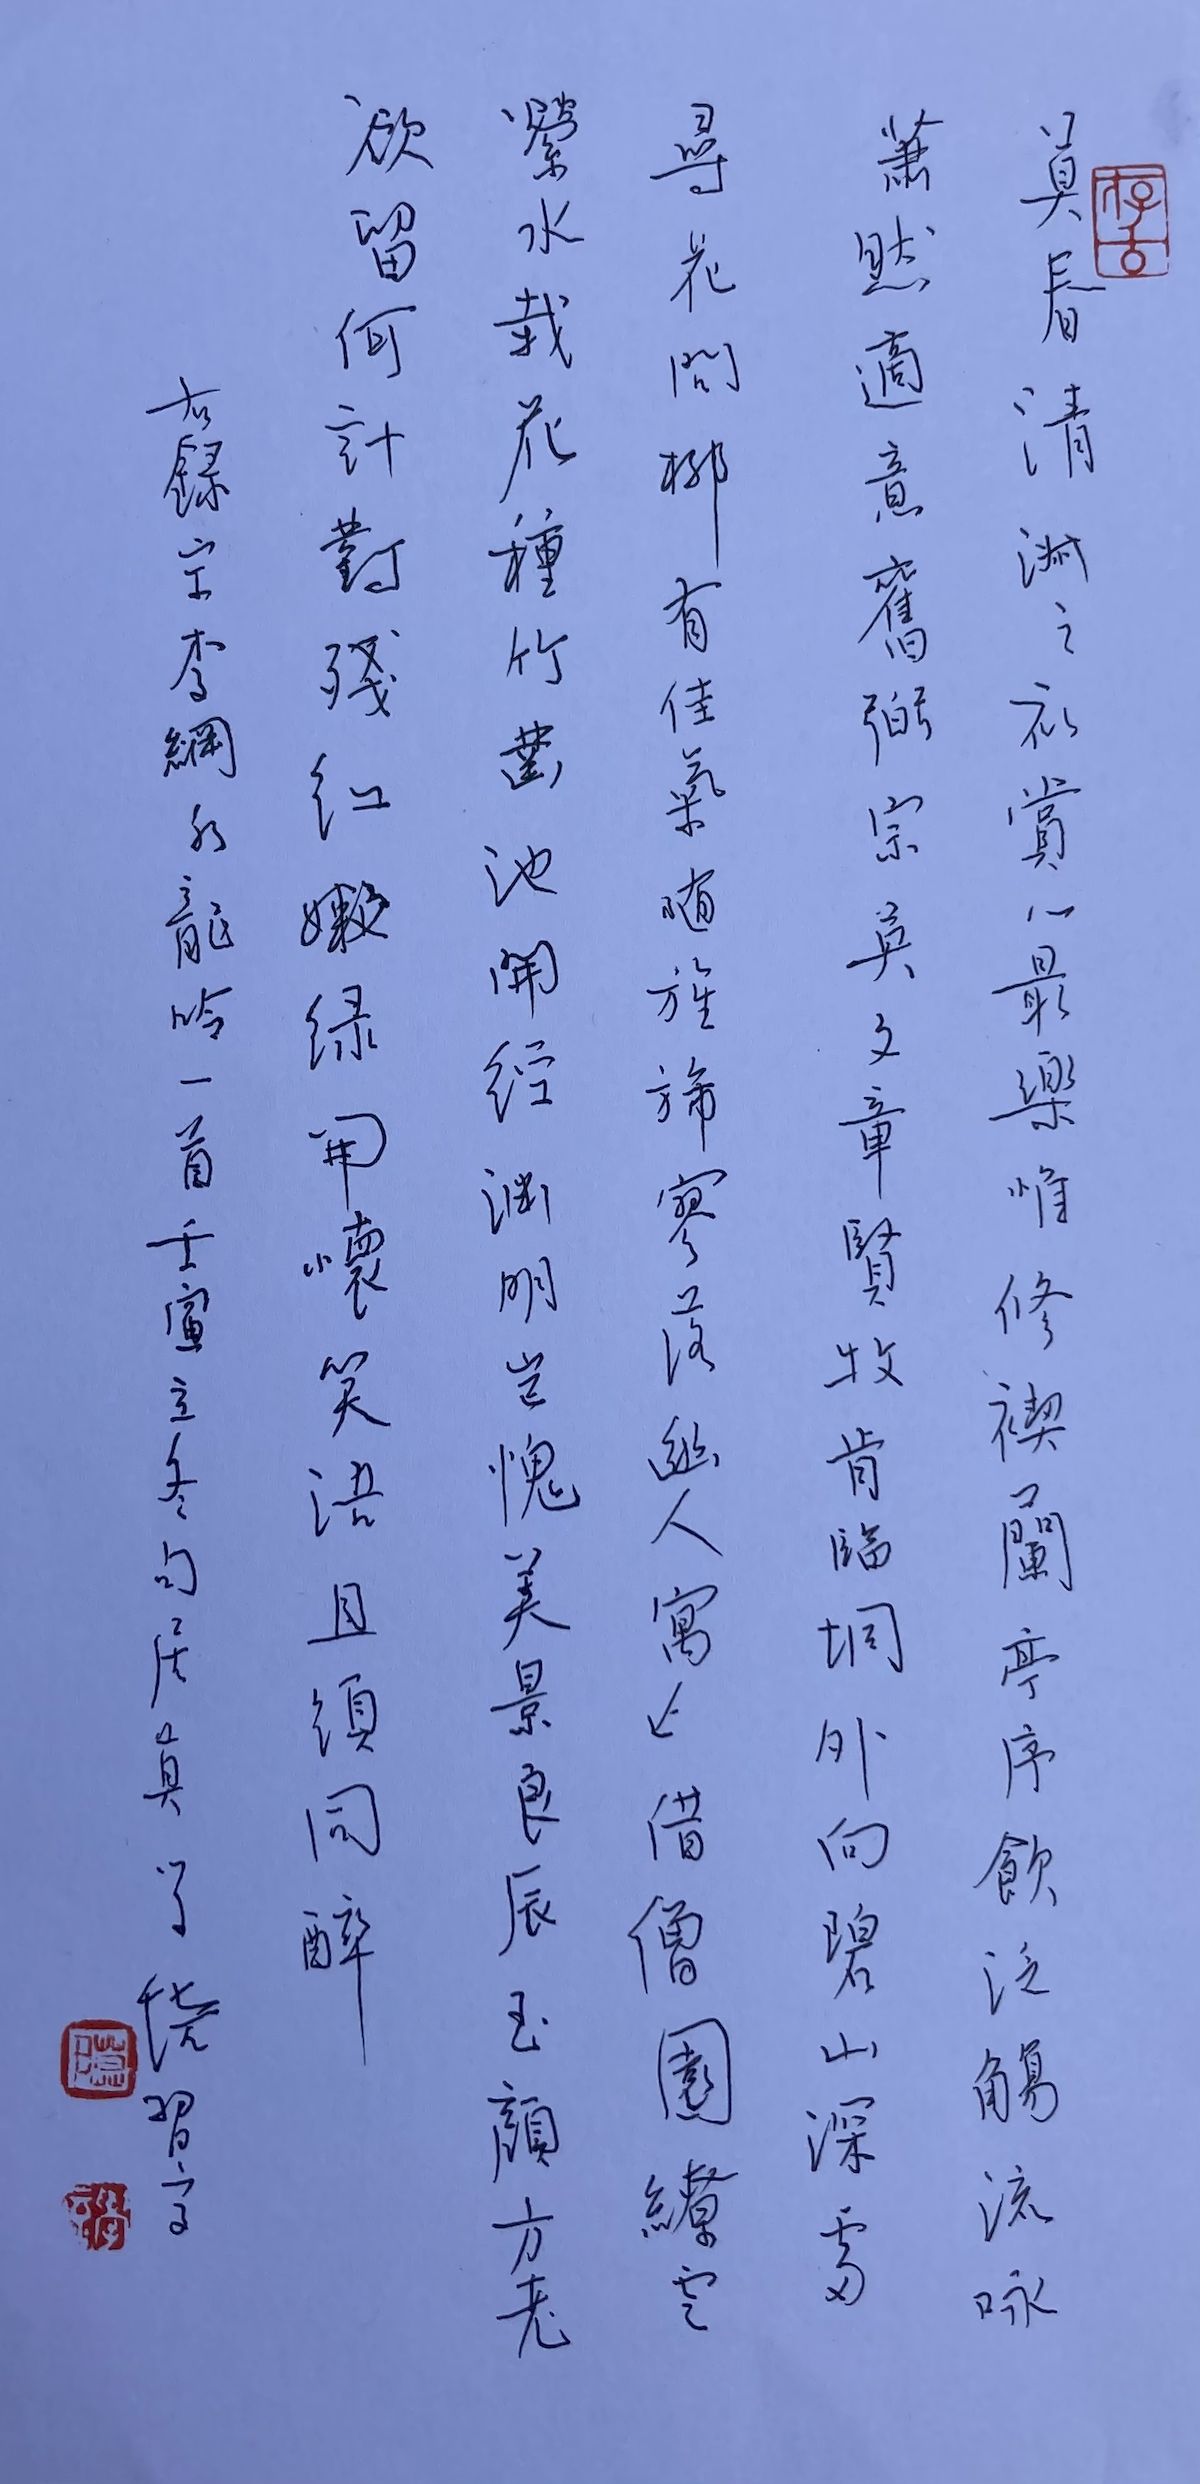 莫春清淑之初賞心最樂惟修禊蘭亭序飲泛觴流咏
蕭然適意舊弼宗英文章賢牧肯臨坰外向碧山深處
尋花問柳有佳氣隨旌斾寥落幽人寓止借僧園繚雲
縈水栽花種竹鑿池開徑淵明豈愧美景良辰玉顏方老
欲留何計對殘紅嫩綠開懷笑語且須同醉
右錄宋李綱水龍吟一首壬寅立冬句居真 習字
存古